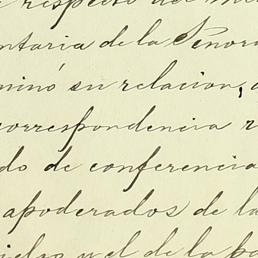 respecto del
ntaria de la Senora
minó su relacion,
correspondencia
do de conferencia
apoderados de la
y el de la